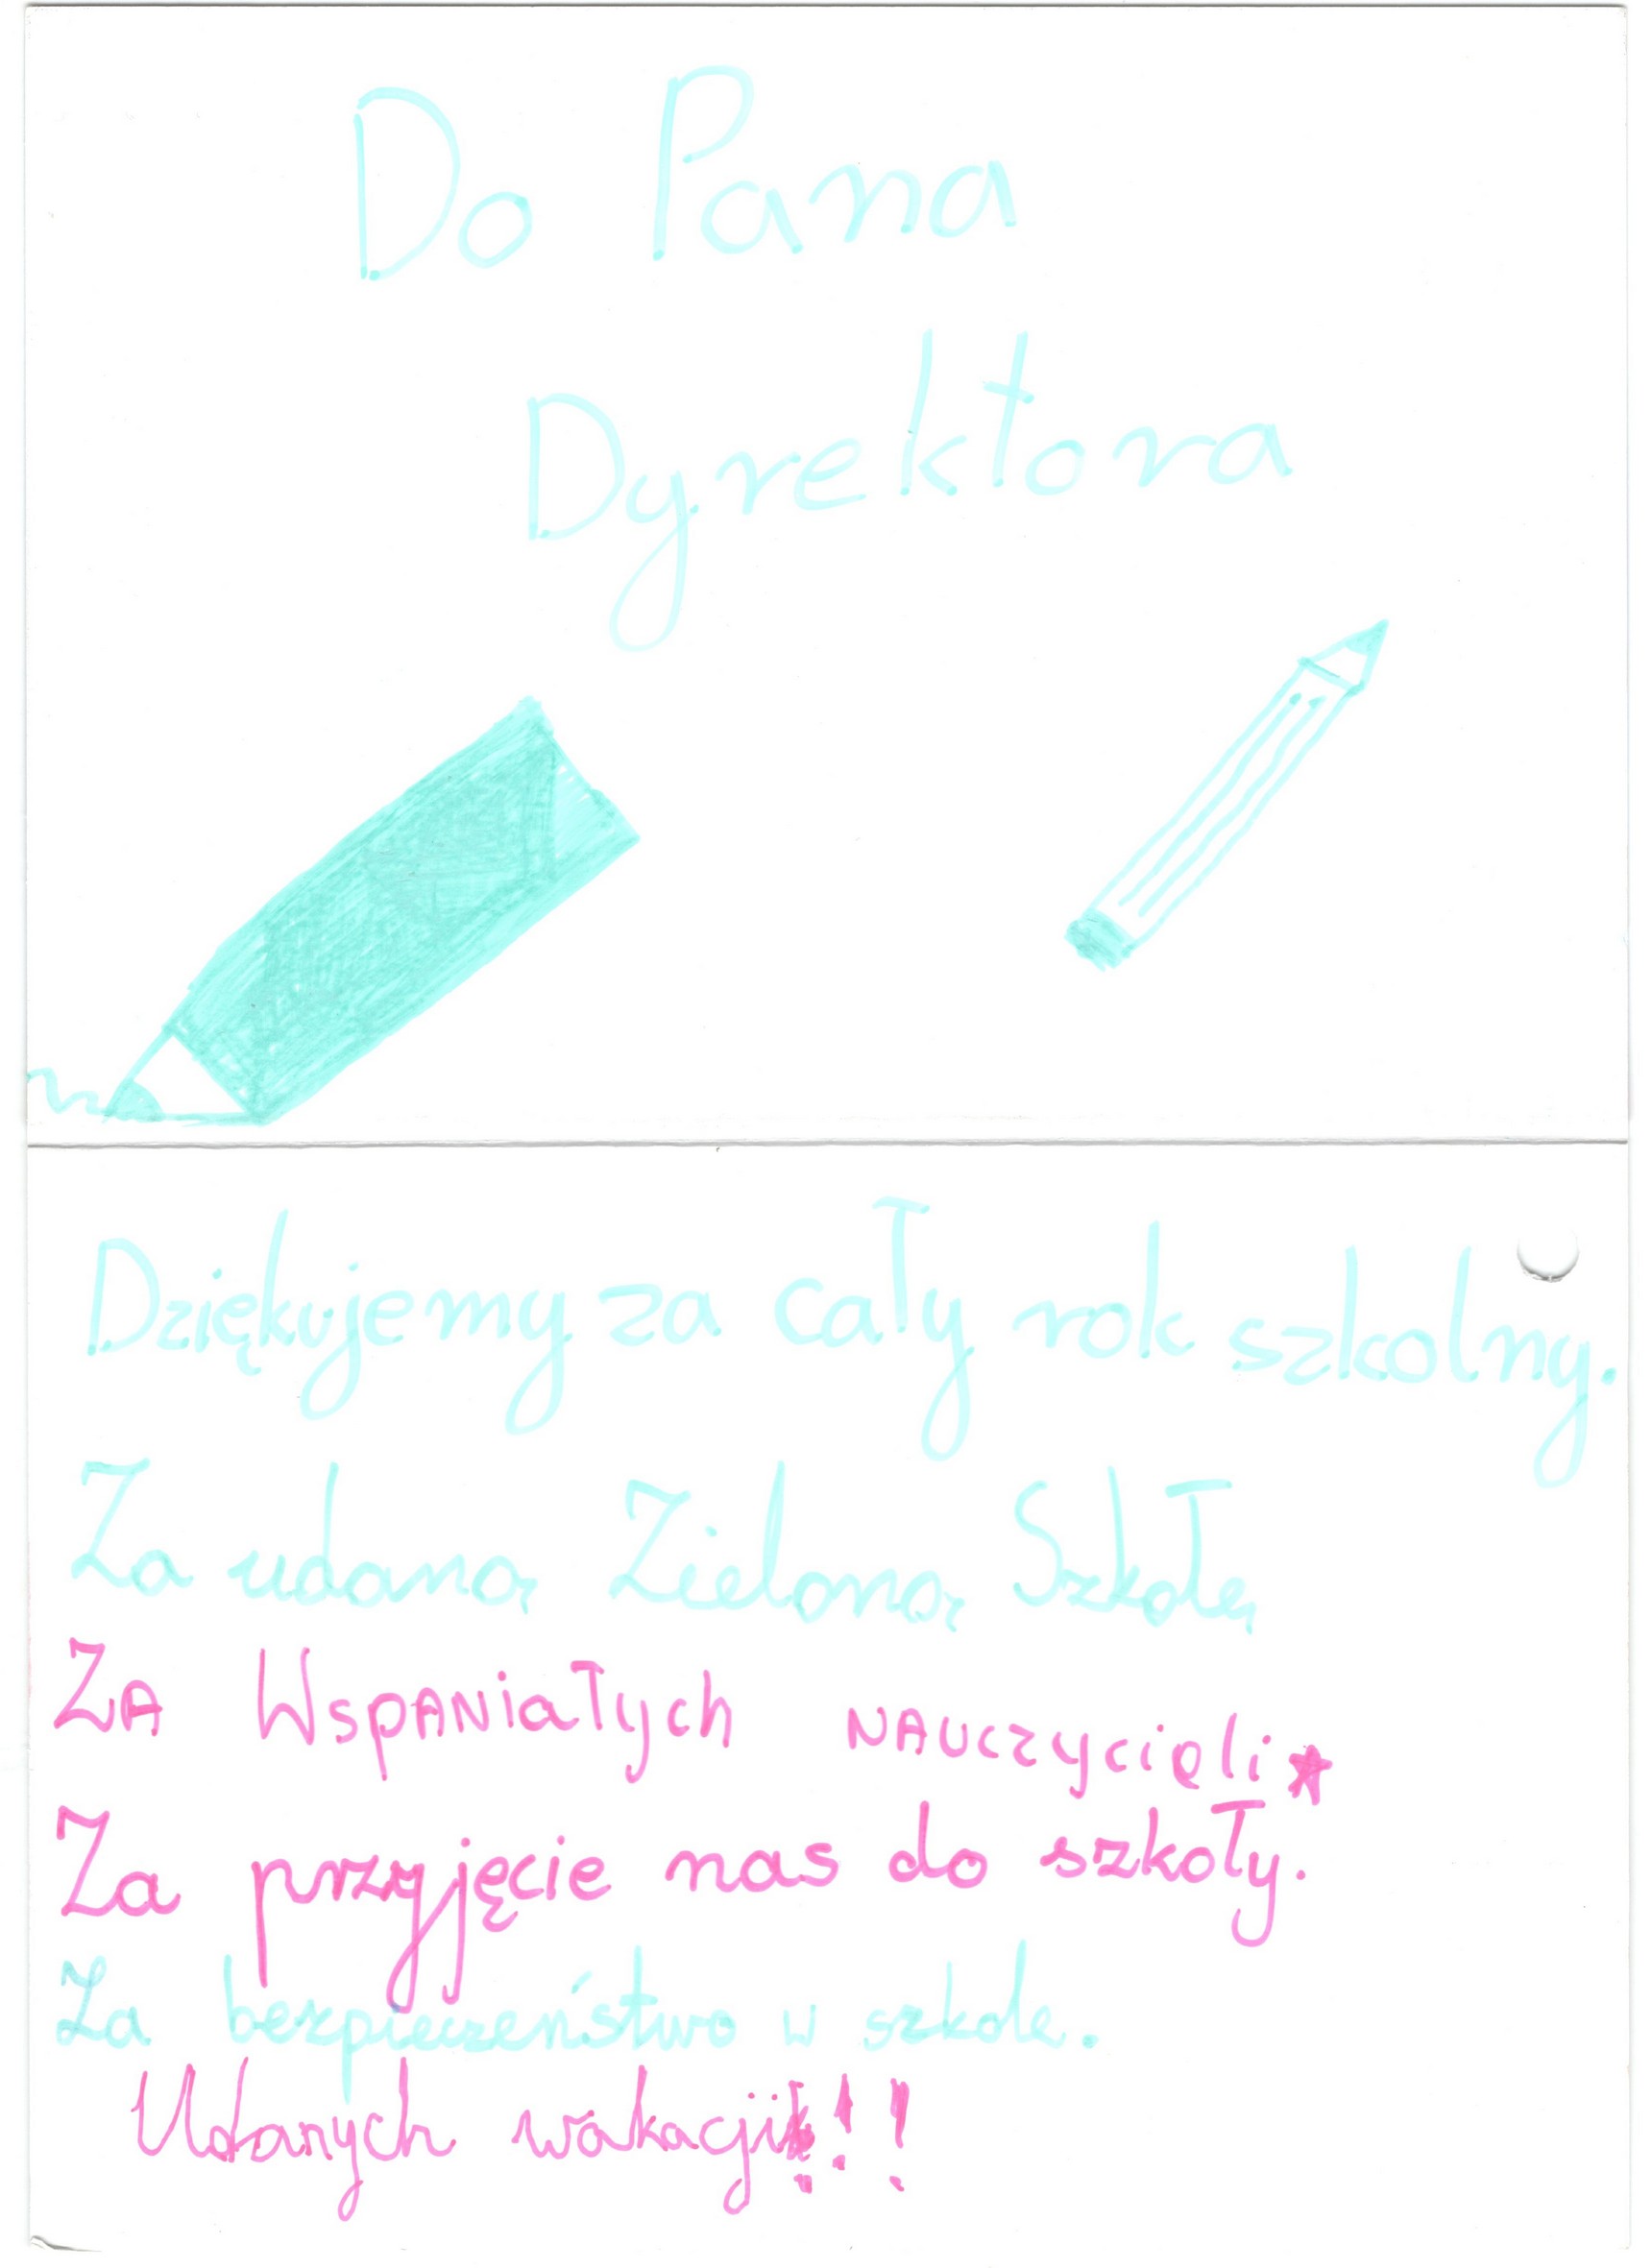 Do Pana
Dyrektora
Dziękujemy za cały rok szkolny.
Za udaną Zieloną Szkołę
ZA WspANiałych NAUczycieli
Za przyjęcie nas do szkoły.
Za bezpieczeństwo w szkole.
Udanych wakacji!!!